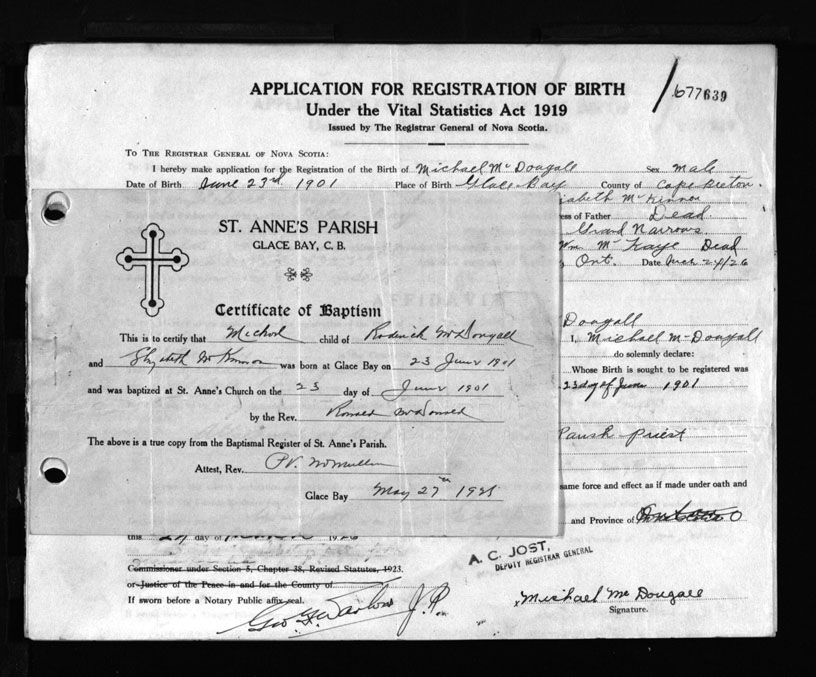 APPLICATION FOR REGISTRATION OF BIRTH
Under the Vital Statistics Act 1919
Issued by The Registrar General of Nova Scotia.
677639
To The Registrar General of Nova Scotia:
I hereby make application for the Registration of the Birth of Michael Mc Dougall Sex male
Date of Birth June 23rd 1901 Place of Birth Glace Bay County of Cape Breton.
Mc Kinnon
ess of Father Dead
Grand Narrows.
Wm. Mc Kaye Dead
Ont. Date Mch 24/26
ST. ANNE'S PARISH
GLACE BAY, C. B.
Certificate of Baptism
This is to certify that Michael child of Roderick McDougall
and Elizabeth McKinnon was born at Glace Bay on 23 June 1901
and was baptized at St. Anne's Church on the 23 day of June 1901
by the Rev. Ronald McDonald
The above is a true copy from the Baptismal Register of St. Anne's Parish.
Attest, Rev.
Glace Bay May 27th
Dougall
I, Michael McDougall
do solemnly declare:
Whose Birth is sought to be registered was
23 day of June 1901
Parish priest
same force and effect as if made under oath and
and Province of
this day of 1926
Commissioner under Section 5, Chapter 38, Revised Statutes, 1923.
or Justice of the Peace in and for the County of
If sworn before a Notary Public affix seal.
J.P.
A. C. JOST,
DEPUTY REGISTRAR GENERAL
Michael Mc Dougall
Signature.